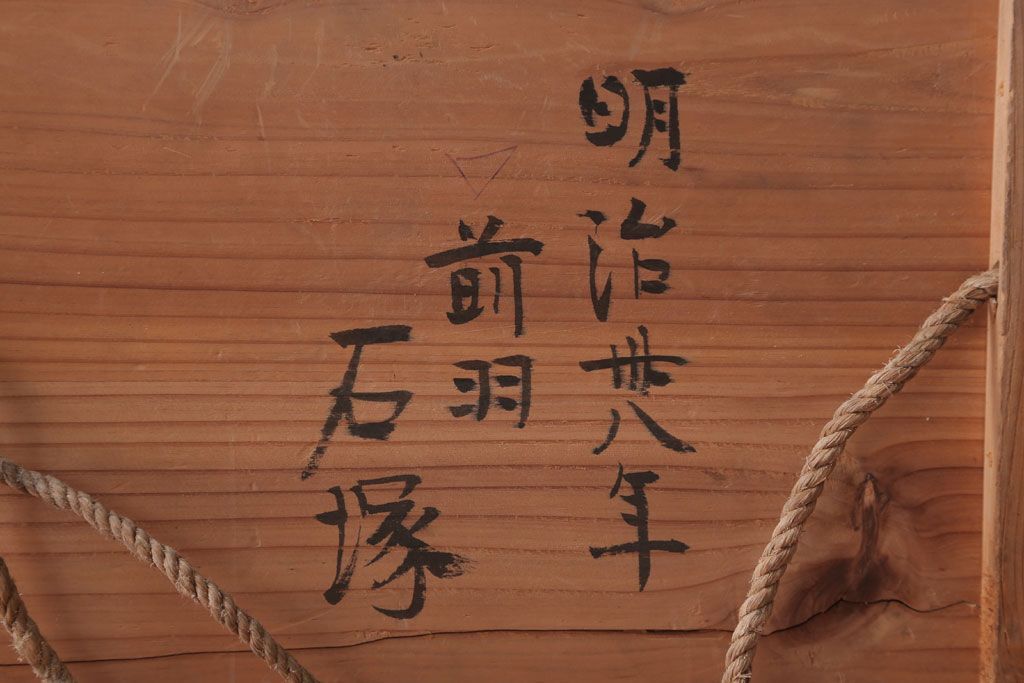 明治丗八年
前羽
石塚